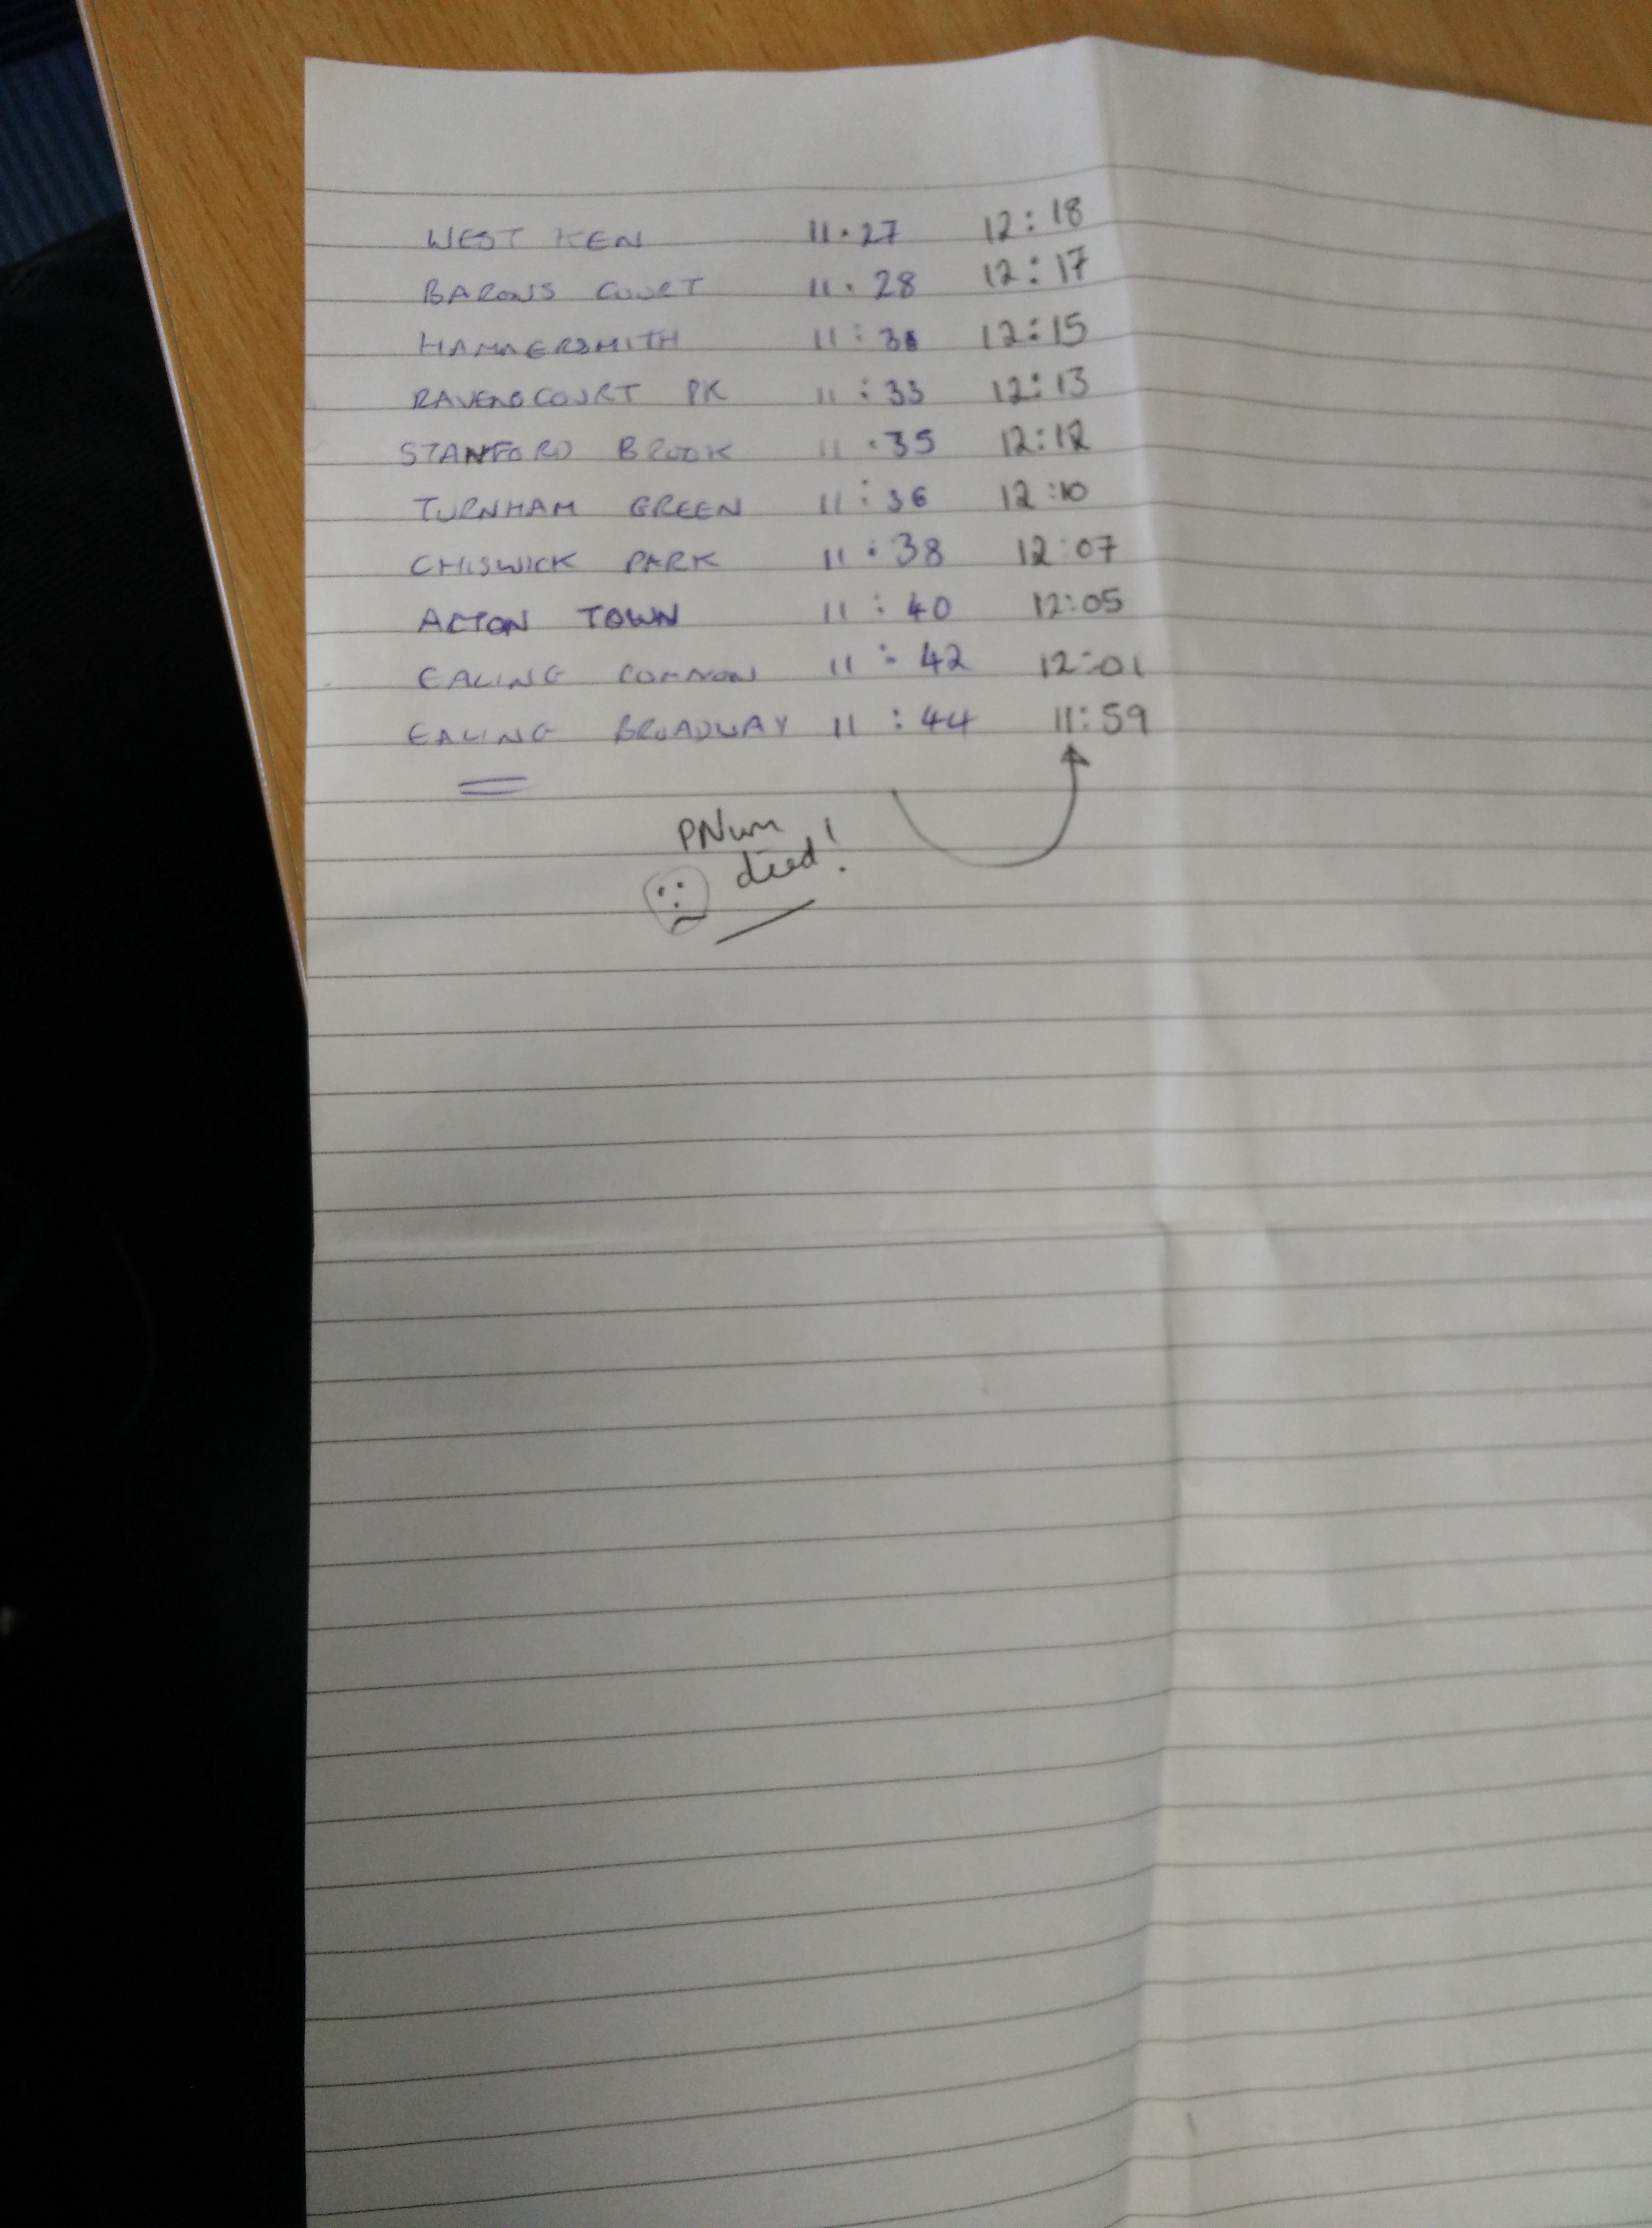 WEST KEN 11.27 12:18
BARONS COURT 11.28 12:17
HAMMERSMITH 12:15
RAVENSCOURT PK 11:33 12:13
STANFORD BROOK 11:35 12:12
TURNHAM GREEN 11:36 12:10
CHISWICK PARK 11:38 12:07
ACTON TOWN 11:40 12:05
EALING COMMON 11:42 12:01
EALING BROADWAY 11:44 11:59
died!